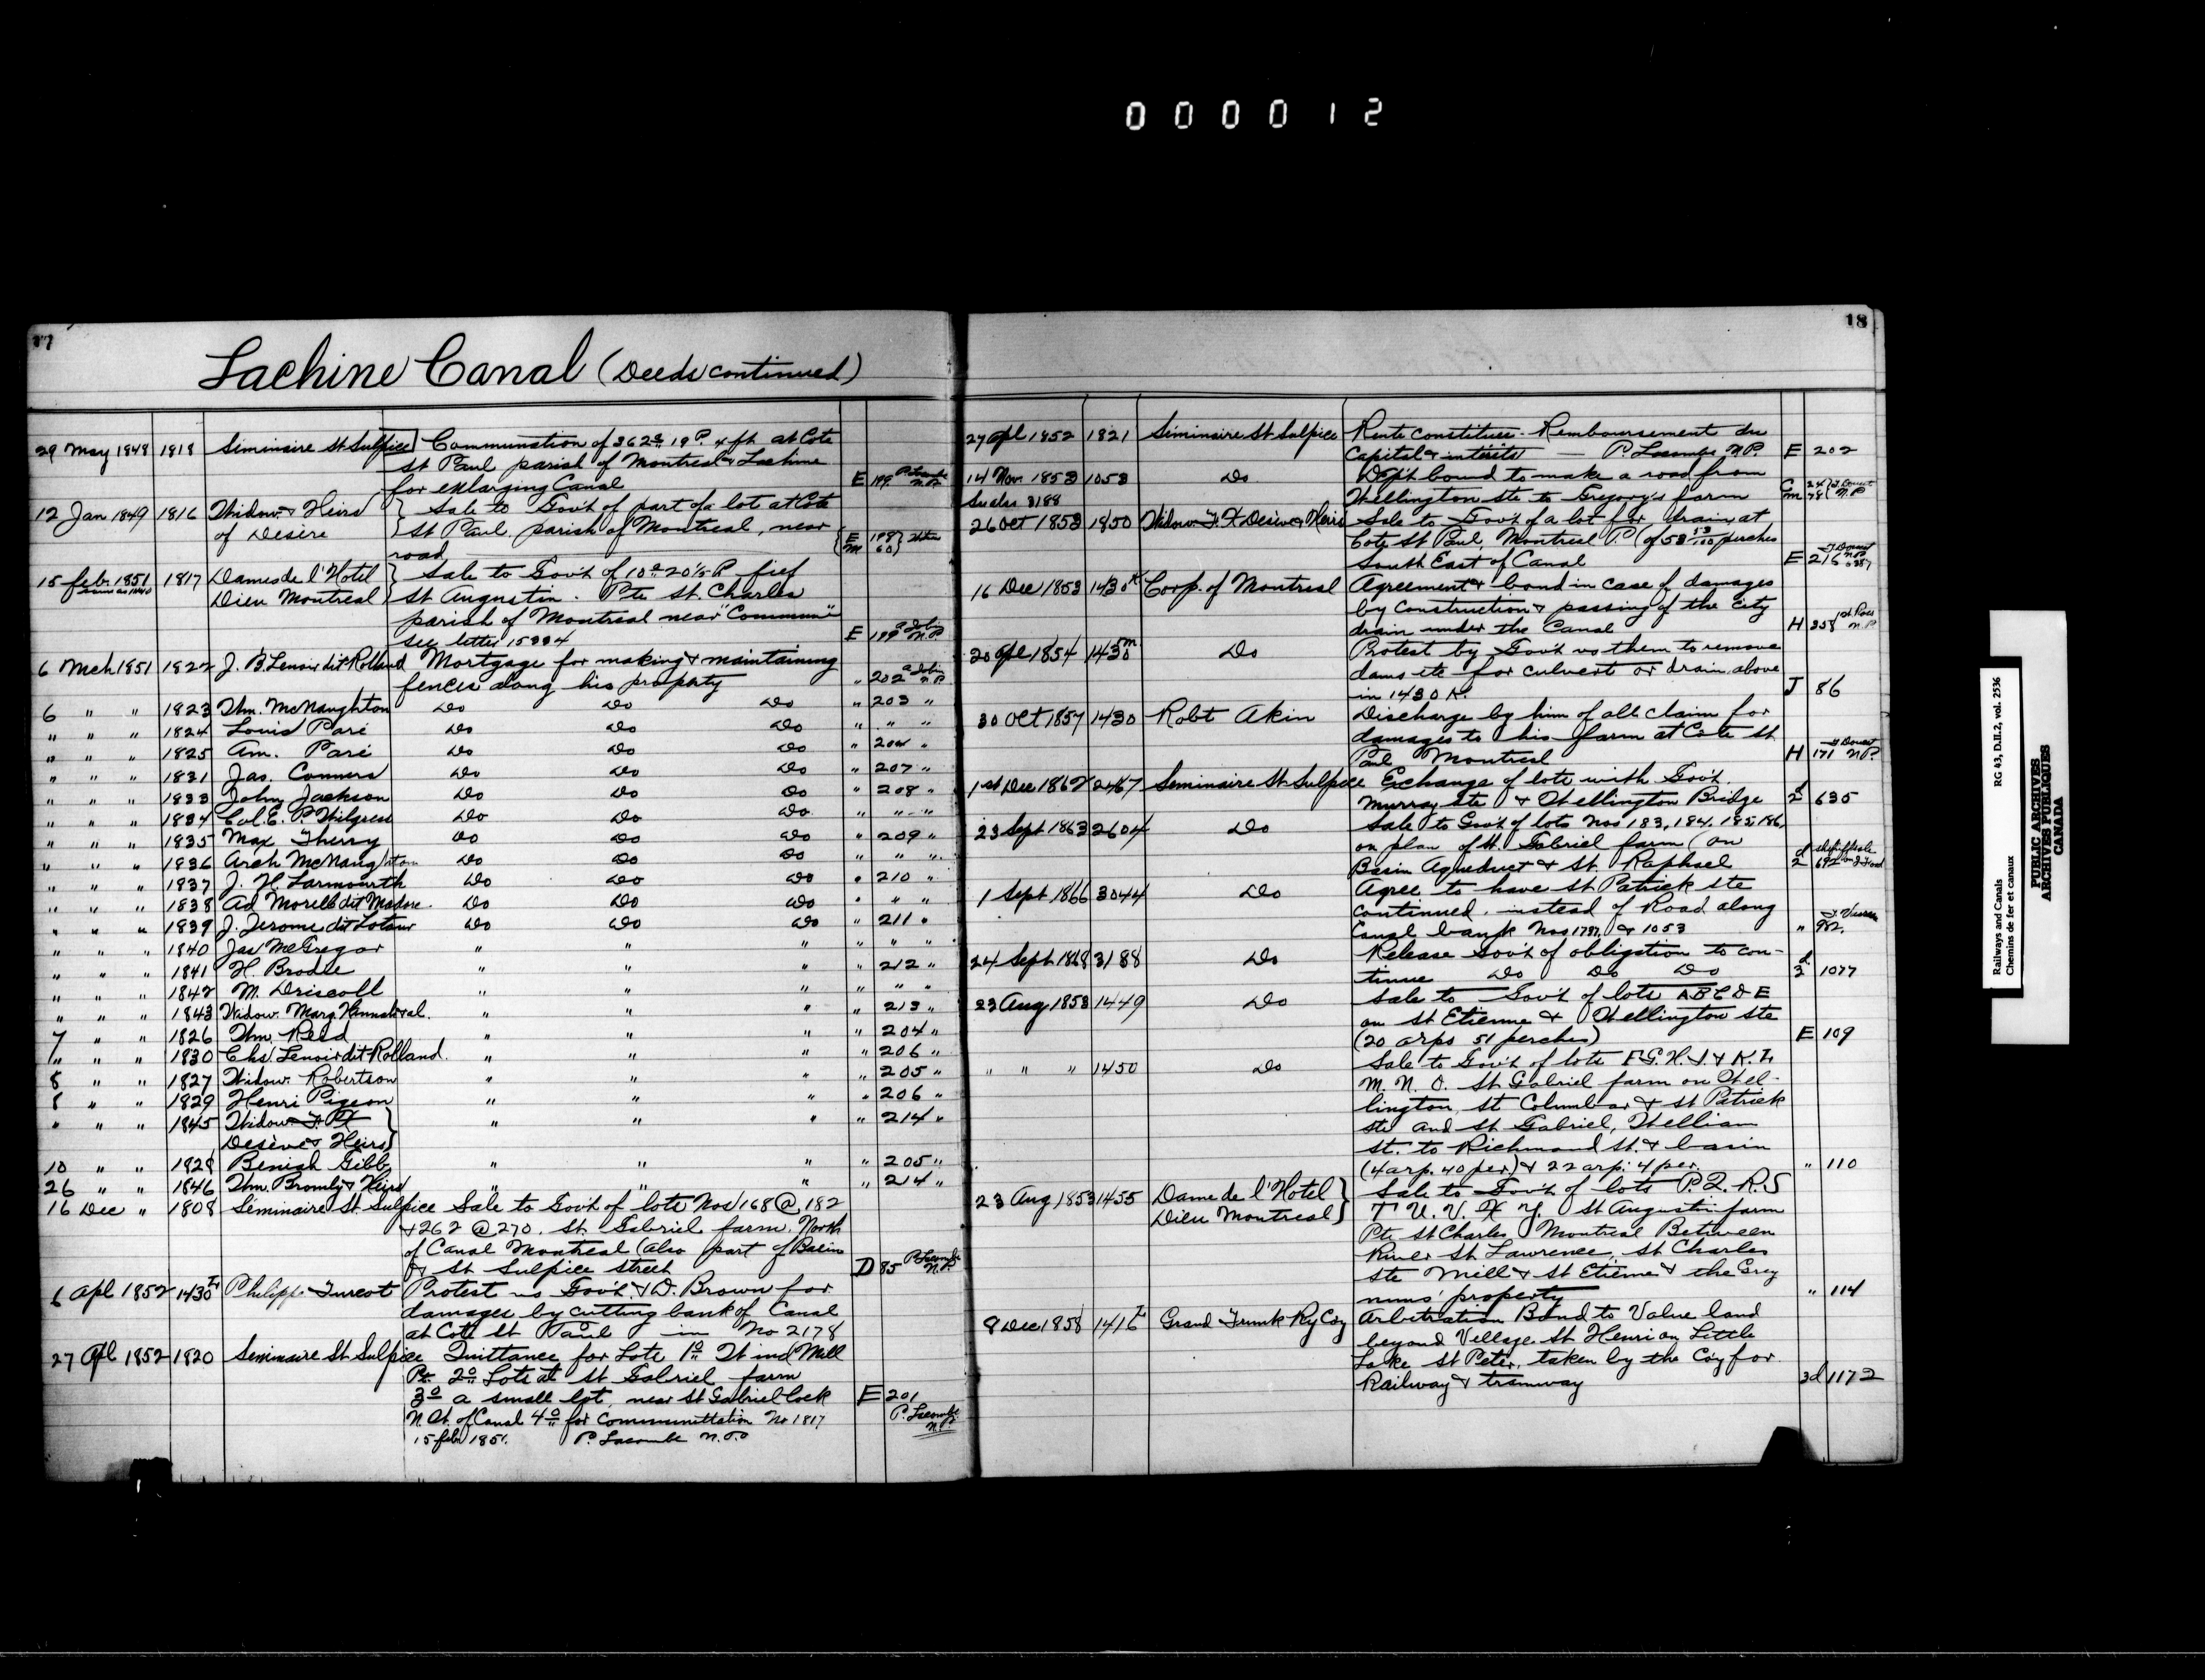 000012
17
Lachine Canal (Deeds continued)
29 May 1848 1818 Seminaire St Sulpice Communation of 362a 19 P. 4 ft at Cote
St Paul parish of Montreal & Lachine
for enlarging Canal E 199 P. Lacombe N.P.
12 Jan 1849 1816 Widow & Heirs Sale to Gov't of part of a lot at Cote
of Desère St Paul parish of Montreal, near
road E 198 M 60
15 feb. 1851 1817 Dames de l'Hotel Sale to Gov't of 10a 20 1/2 P. fief
Dieu Montreal St Augustin. Pte St. Charles
parish of Montreal near "Commune"
see letter 15334 E 199 N.P.
6 Mch 1851 1822 J. B. Lenoir dit Rolland Mortgage for making & maintaining
fences along his property " 202 N.P.
6 " " 1823 Wm. McNaughton Do Do Do " 203 "
" " " 1824 Louis Paré Do Do Do " " "
" " " 1825 Am. Paré Do Do Do " 204 "
" " " 1831 Jas. Conners Do Do Do " 207 "
" " " 1833 John Jackson Do Do Do " 208 "
" " " 1834 Col. E. P. Wilgress Do Do Do " " "
" " " 1835 Max Therry Do Do Do " 209 "
" " " 1836 Arch McNaughton Do Do Do " " "
" " " 1837 J. H. Larmourth Do Do Do " 210 "
" " " 1838 Ad Morell dit Madore Do Do Do " " "
" " " 1839 J. Jerome dit Latour Do Do Do " 211 "
" " " 1840 Jas McGregor " " " " " "
" " " 1841 H. Brodie " " " " 212 "
" " " 1842 M. Driscoll " " " " " "
" " " 1843 Widow Marg. Hannah & al. " " " " 213 "
7 " " 1826 Wm. Reed " " " " 204 "
" " " 1830 Chs Lenoir dit Rolland. " " " " 206 "
8 " " 1827 Widow Robertson " " " " 205 "
8 " " 1829 Henri Pigeon " " " " 206 "
" " " 1845 Widow F. X " " " " 214 "
Desève & Heirs
10 " " 1828 Beniah Gibb " " " " 205 "
26 " " 1846 Wm. Bromly & Heirs " " " " 214 "
16 Dec " 1808 Seminaire St. Sulpice Sale to Gov't of lots Nos 168 @ 182
& 262 @ 270. St. Gabriel farm. North
of Canal Montreal (also part of Basin
& St Sulpice street D 85 P. Lacombe N.P.
6 Apl 1852 1430L Philipp Turcot Protest vs Gov't & D. Brown for
damages by cutting bank of Canal
at Cote St Paul in No 2178
27 Apl 1852 1820 Seminaire St Sulpice Quittance for Lots 1o at Wind Mill
Pt. 2o Lots at St Gabriel farm
3o a small lot, near St Gabriel lock E 201
N. St. of Canal 4o for Communittation No 1817 P. Lacombe N.P.
15 feb 1851. P. Lacombe N.P.
18
27 Apl 1852 1821 Seminaire St Sulpice Rente constituee - Remboursement du
Capital & interêts — P Lacombe N.P. E 202
14 Nov. 1853 1053 Do Dept bound to make a road from
See also 3188 Wellington ste to Gregory's farm C 24 M 48 N.P.
26 Oct 1853 1850 Widow F. X Desève & Heirs Sale to Gov't of a lot for drain at
Cote St Paul, Montreal P. (of 58 53/100 perches
South East of Canal E 216 J Doucet N.P.
16 Dec 1853 1430K Corp. of Montreal Agreement & bond in case of damages
by construction & passing of the city
drain under the Canal H 358 N.P.
20 Apl 1854 1430m Do Protest by Gov't vs them to remove
dams etc for culvert or drain above
in 1430 K. J 86
30 Oct 1857 1430 Robt Akin Discharge by him of all claim for
damages to his farm at Cote St
Paul Montreal H 171 J Doucet N.P.
1st Dec 1862 2467 Seminaire St Sulpice Exchange of lots with Gov't.
Murray ste & Wellington Bridge 2d 635
23 Sept 1863 2604 Do Sale to Gov't of lots Nos 183, 184, 185, 186,
on plan of St. Gabriel farm (on
Basin Aqueduct & St. Raphael 2d 692
1 Sept 1866 3044 Do Agree to have St Patrick ste
continued instead of Road along
Canal bank Nos 1787, & 1053 " 982.
24 Sept 1868 3188 Do Release Gov't of obligation to con-
tinue Do Do Do 3d 1077
23 Aug 1853 1449 Do Sale to Gov't of lots A B C D E
on St Etienne & Wellington ste
(20 arps 51 perches) E 109
" " " 1450 Do Sale to Gov't of lots F. G. H. I. & K. L.
M. N. O. St Gabriel farm on Wel-
lington, St Columbar & St Patrick
ste and St Gabriel, William
St. to Richmond St. & basin
(4 arp. 40 per) & 22 arp: 4 per. " 110
23 Aug 1853 1455 Dame de l'Hotel Sale to Gov't of lots P. Q. R. S
Dieu Montreal T U. V. X Y. St Augustin farm
Pte St Charles Montreal Between
River St Lawrence, St Charles
ste Mill & St Etienne & the Grey
nuns' property " 114
9 Dec 1858 1416L Grand Trunk Ry Coy Arbitration Bond to Value land
beyond Village St Henri on Little
Lake St Peter, taken by the Coy for
Railway & tramway 3d 1172
Railways and Canals RG 43, D.II.2, vol. 2536
Chemins de fer et canaux
PUBLIC ARCHIVES
ARCHIVES PUBLIQUES
CANADA